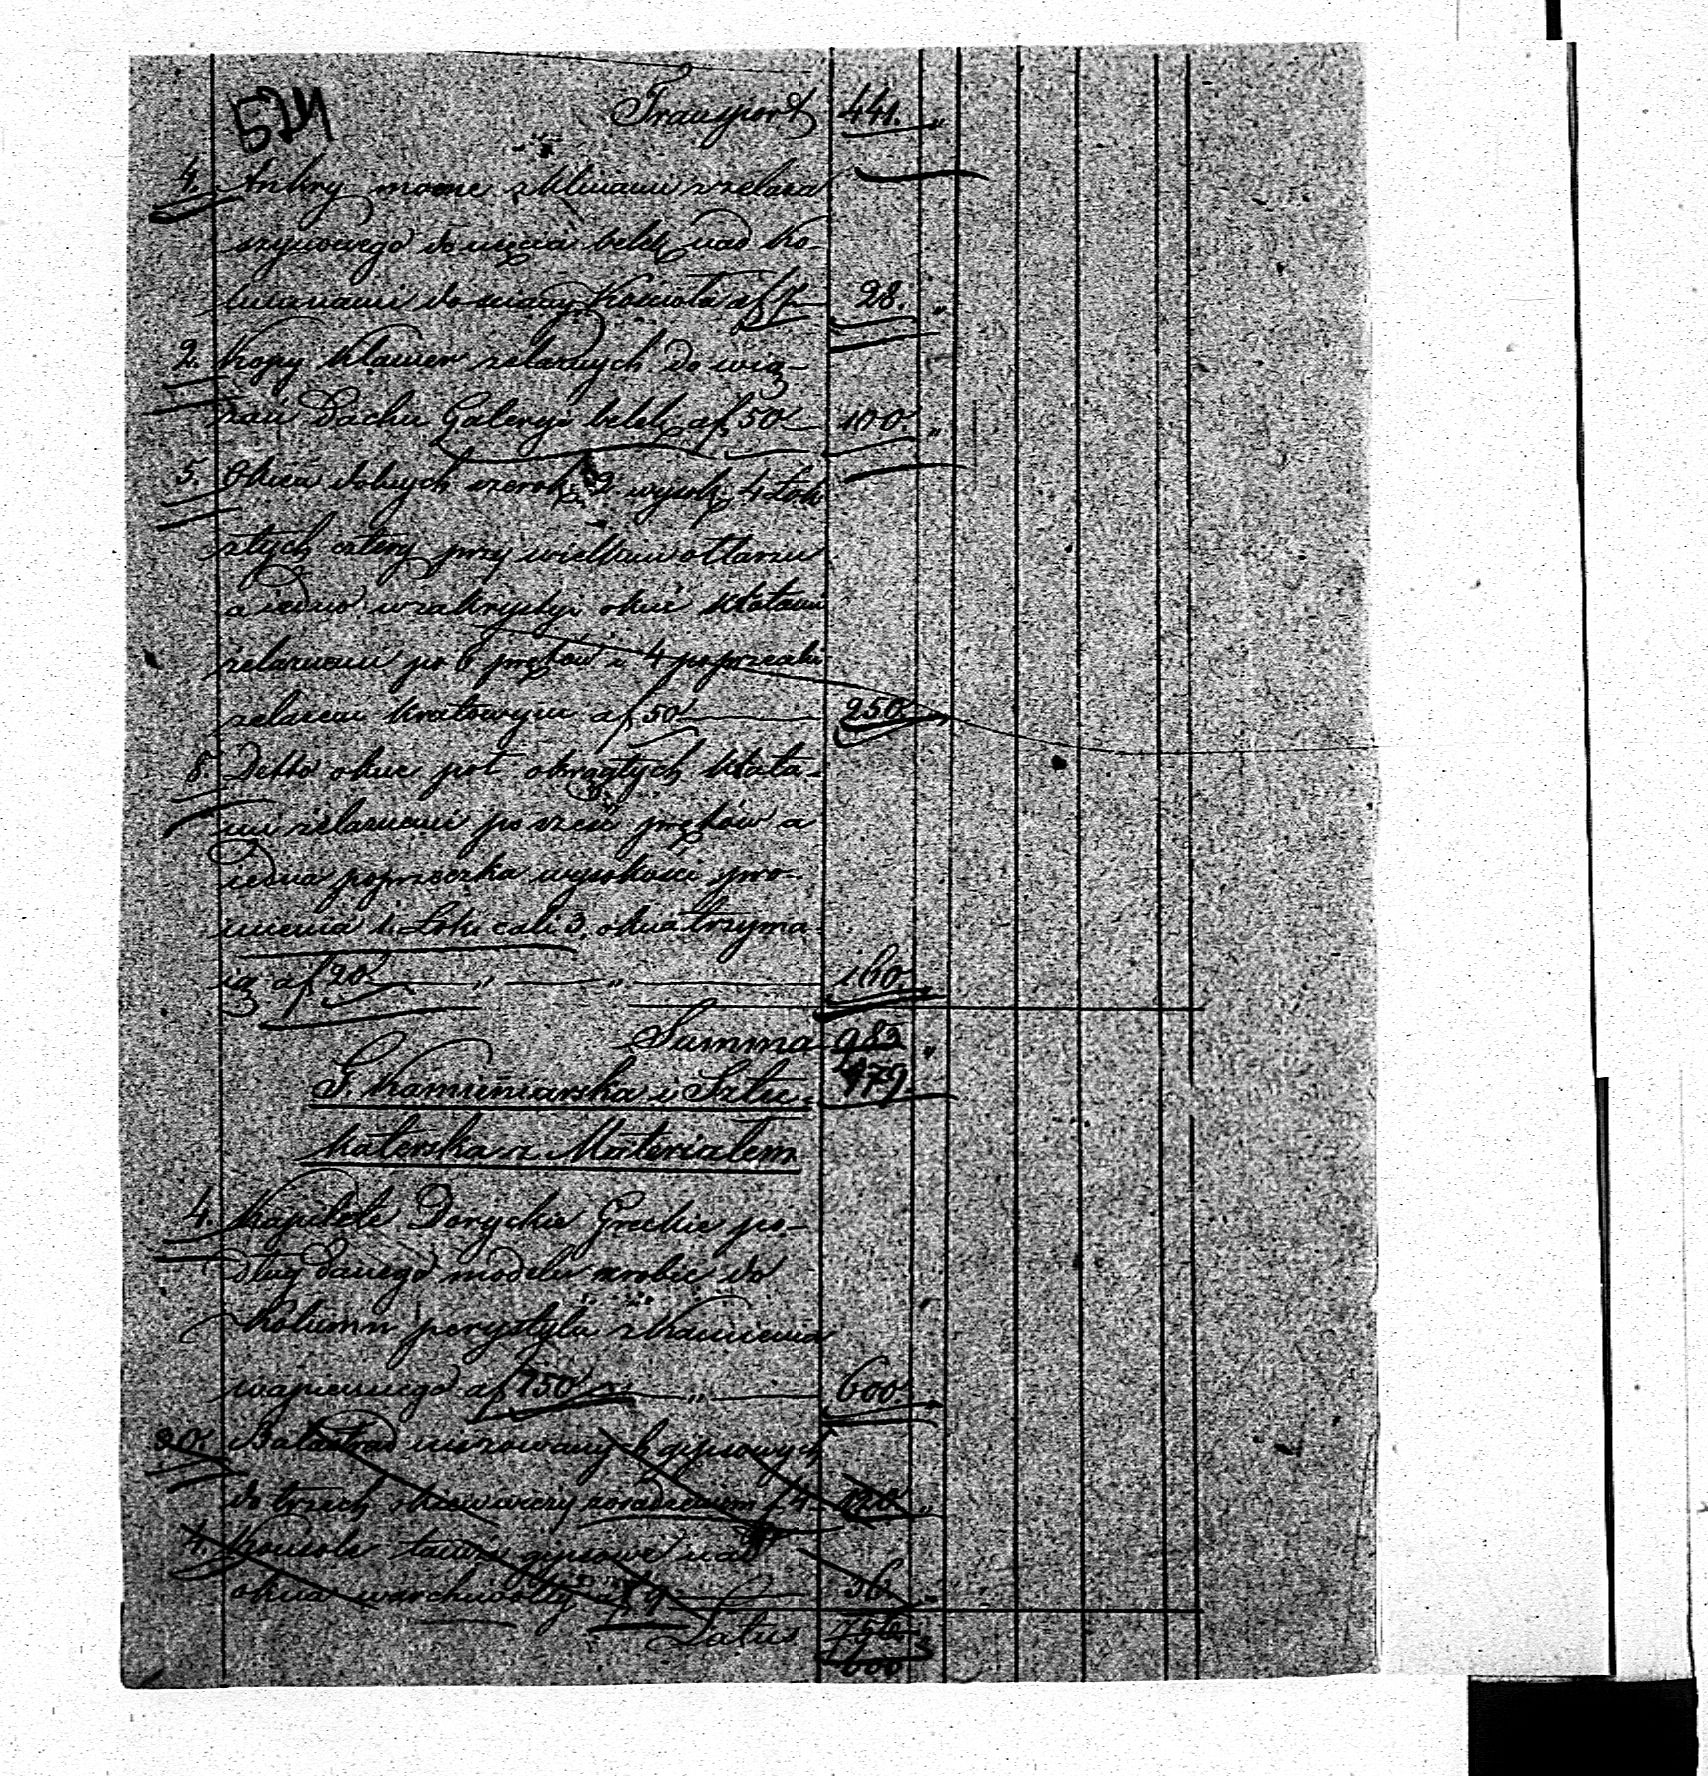 524
Transport 441. "
4. Ankry mocne z klinami z zelaza
szynowego do ujęcia belek nad ko-
lumnami do sciany Kościoła af 7 — 28. "
2. Kopy Klamer zelaznych do wią-
zań Dachu Galeryi belek af 50 — 100. "
5. Okien dolnych szerok. 2 wysok. 4 Łok
z tych cztery przy wielkim ołtarzu
a jedno w zakrystyi okuć Kratami
żelaznemi po 6 prętów i 4 poprzeczki
zelazem kratowym af 50 — 250. "
8. Detto okuć pół okrągłych Krata-
mi żelaznemi po sześć prętów a
jedna poprzeczka wysokości pro-
mienia 1. Łok. cali 3. okna trzyma-
ią af 20 — " — " — 160. "
Summa 982 "
979.
G. Kamieniarska i Sztu-
katorska z Materiałem
4. Kapitele Doryckie Greckie po-
dług danego modelu zrobić do
Kolumn perystylu z kamienia
wapiennego af 150 — " — 600. "
30. Balustrad murowanych gipsowych
do trzech af 4 — 120 "
4. Konsole gipsowe nad
okna af 9 — 36. "
Latus 756
600